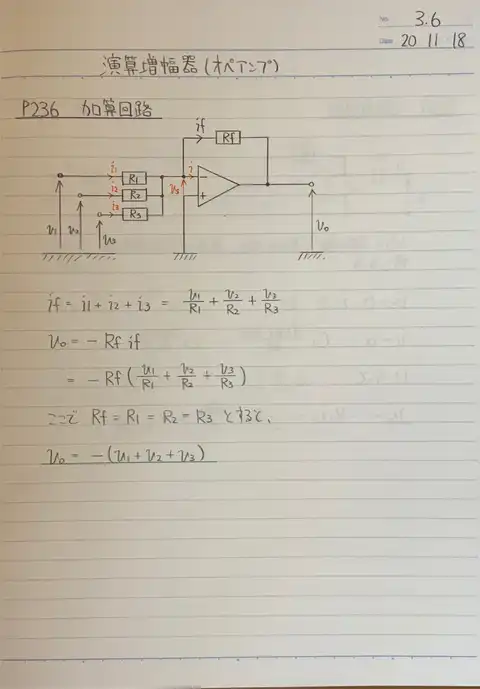 No. 3.6
Date 20 11 18
演算増幅器(オペアンプ)
P236 加算回路
if
Rf
i1 R1 i
i2 R2 vs − +
i3 R3
v1 v2 v3 vo
if = i1 + i2 + i3 = v1/R1 + v2/R2 + v3/R3
vo = − Rf if
= − Rf ( v1/R1 + v2/R2 + v3/R3 )
ここで Rf = R1 = R2 = R3 とすると、
vo = −(v1 + v2 + v3)